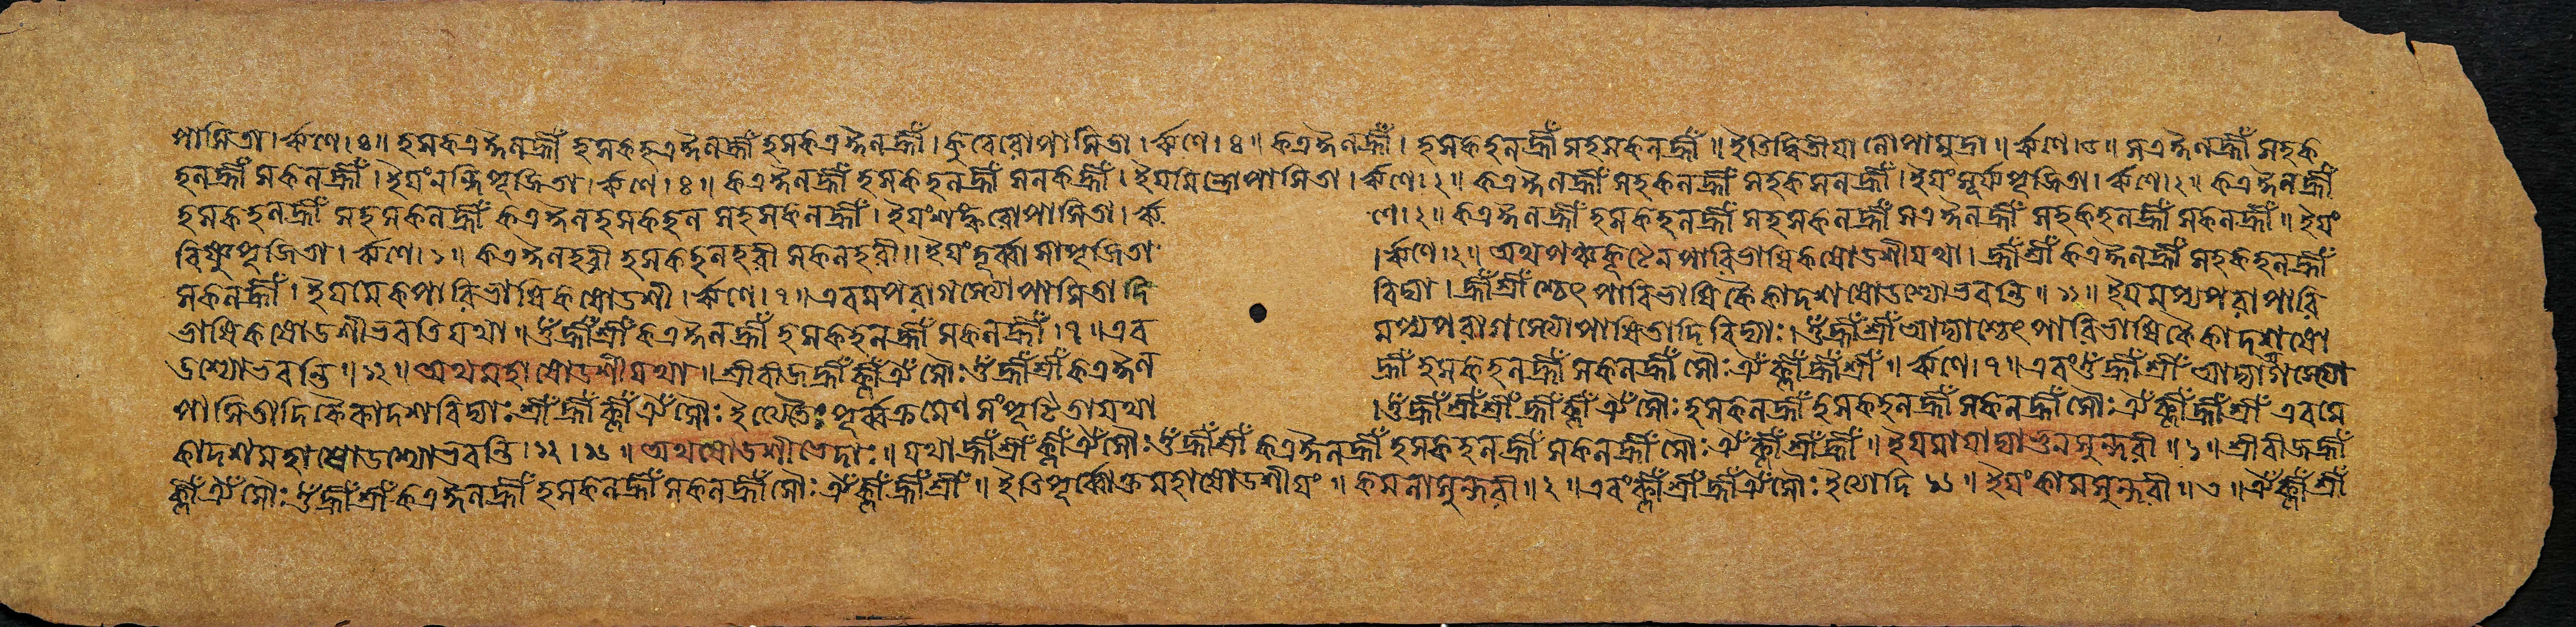 পাসিতা। ৪॥ হসকএঈলহ্রীঁ হসকহএঈলহ্রীঁ হসকএঈলহ্রীঁ। কুবেরোপাসিতা। ৪॥ কএঈলহ্রীঁ। হসকহলহ্রীঁ সহসকলহ্রীঁ॥ ইতিদ্বিতীয়া লোপামুদ্রা॥ সএঈলহ্রীঁ সহক
হলহ্রীঁ সকলহ্রীঁ। ইয়ংনন্দিপূজিতা। ৪॥ কএঈলহ্রীঁ হসকহলহ্রীঁ সলকহ্রীঁ। ইয়মিন্দ্রোপাসিতা। ২॥ কএঈলহ্রীঁ সহকলহ্রীঁ সহকসলহ্রীঁ। ইয়ংসূর্য্যপূজিতা। ২॥ কএঈলহ্রীঁ
হসকহলহ্রীঁ সহসকলহ্রীঁ কএঈলহসকহল সহসকলহ্রীঁ। ইয়ংশঙ্করোপাসিতা। ২॥ কএঈলহ্রীঁ হসকহলহ্রীঁ সহসকলহ্রীঁ সএঈলহ্রীঁ সহকহলহ্রীঁ সকলহ্রীঁ॥ ইয়ং
বিষ্ণুপূজিতা। ১॥ কএঈলহরী হসকহলহরী সকলহরী॥ ইয়ংদূর্ব্বাসাপূজিতা ২॥ অথপঞ্চকূটেনপারিভাষিকষোডশীযথা। হ্রীঁশ্রীঁ কএঈলহ্রীঁ সহকহলহ্রীঁ
সকলহ্রীঁ। ইয়মেকপারিভাষিকষোডশী। ৭॥ এবমপরাগস্ত্যোপাসিতাদি বিদ্যা। হ্রীঁশ্রীঁ শ্চেৎ পারিভাষিকৈকাদশষোডশ্যোভবন্তি॥ ১১॥ ইয়মপ্যপরাপারি
ভাষিকষোডশীভবতিযথা॥ ওঁহ্রীঁশ্রীঁ কএঈলহ্রীঁ হসকহলহ্রীঁ সকলহ্রীঁ। ৭॥ এব মপ্যপরাগস্ত্যোপাসিতাদিবিদ্যাঃ। ওঁহ্রীঁশ্রীঁ আদ্যাশ্চেৎ পারিভাষিকৈকাদশষো
ডশ্যোভবন্তি॥ ১২॥ অথমহাষোডশীযথা॥ শ্রীবীজহ্রীঁক্লীঁঐঁসৌঃ ওঁহ্রীঁশ্রীঁকএঈল হ্রীঁ হসকহলহ্রীঁ সকলহ্রীঁ সৌঃ ঐঁক্লীঁহ্রীঁশ্রীঁ॥ ৭॥ এবংওঁহ্রীঁশ্রীঁ আদ্যাগস্ত্যো
পাসিতাদিকৈকাদশবিদ্যাঃ শ্রীঁহ্রীঁক্লীঁঐঁসৌঃ ইত্যেতৈঃ পূর্ব্বক্রমেণ সংপূটিতাযথা। ওঁহ্রীঁশ্রীঁশ্রীঁহ্রীঁক্লীঁঐঁসৌঃ হসকলহ্রীঁ হসকহলহ্রীঁ সকলহ্রীঁ সৌঃ ঐঁক্লীঁহ্রীঁশ্রীঁ এবমে
কাদশমহাষোডশ্যোভবন্তি। অথষোডশীভেদাঃ॥ যথাহ্রীঁশ্রীঁক্লীঁঐঁসৌঃ ওঁহ্রীঁশ্রীঁ কএঈলহ্রীঁ হসকহলহ্রীঁ সকলহ্রীঁ সৌঃ ঐঁক্লীঁশ্রীঁহ্রীঁ॥ ইয়মায়াদ্যা সুন্দরী॥ ১॥ শ্রীবীজহ্রীঁ
ক্লীঁঐঁসৌঃ ওঁহ্রীঁশ্রীঁ কএঈলহ্রীঁ হসকলহ্রীঁ সকলহ্রীঁ সৌঃ ঐঁক্লীঁহ্রীঁশ্রীঁ॥ ইতিপূর্ব্বোক্তমহাষোডশীয়ং॥ কমলাসুন্দরী॥ ২॥ এবংক্লীঁশ্রীঁহ্রীঁঐঁসৌঃ ইত্যাদি ॥ ইয়ংকামসুন্দরী॥ ৩॥ ঐঁক্লীঁশ্রীঁ